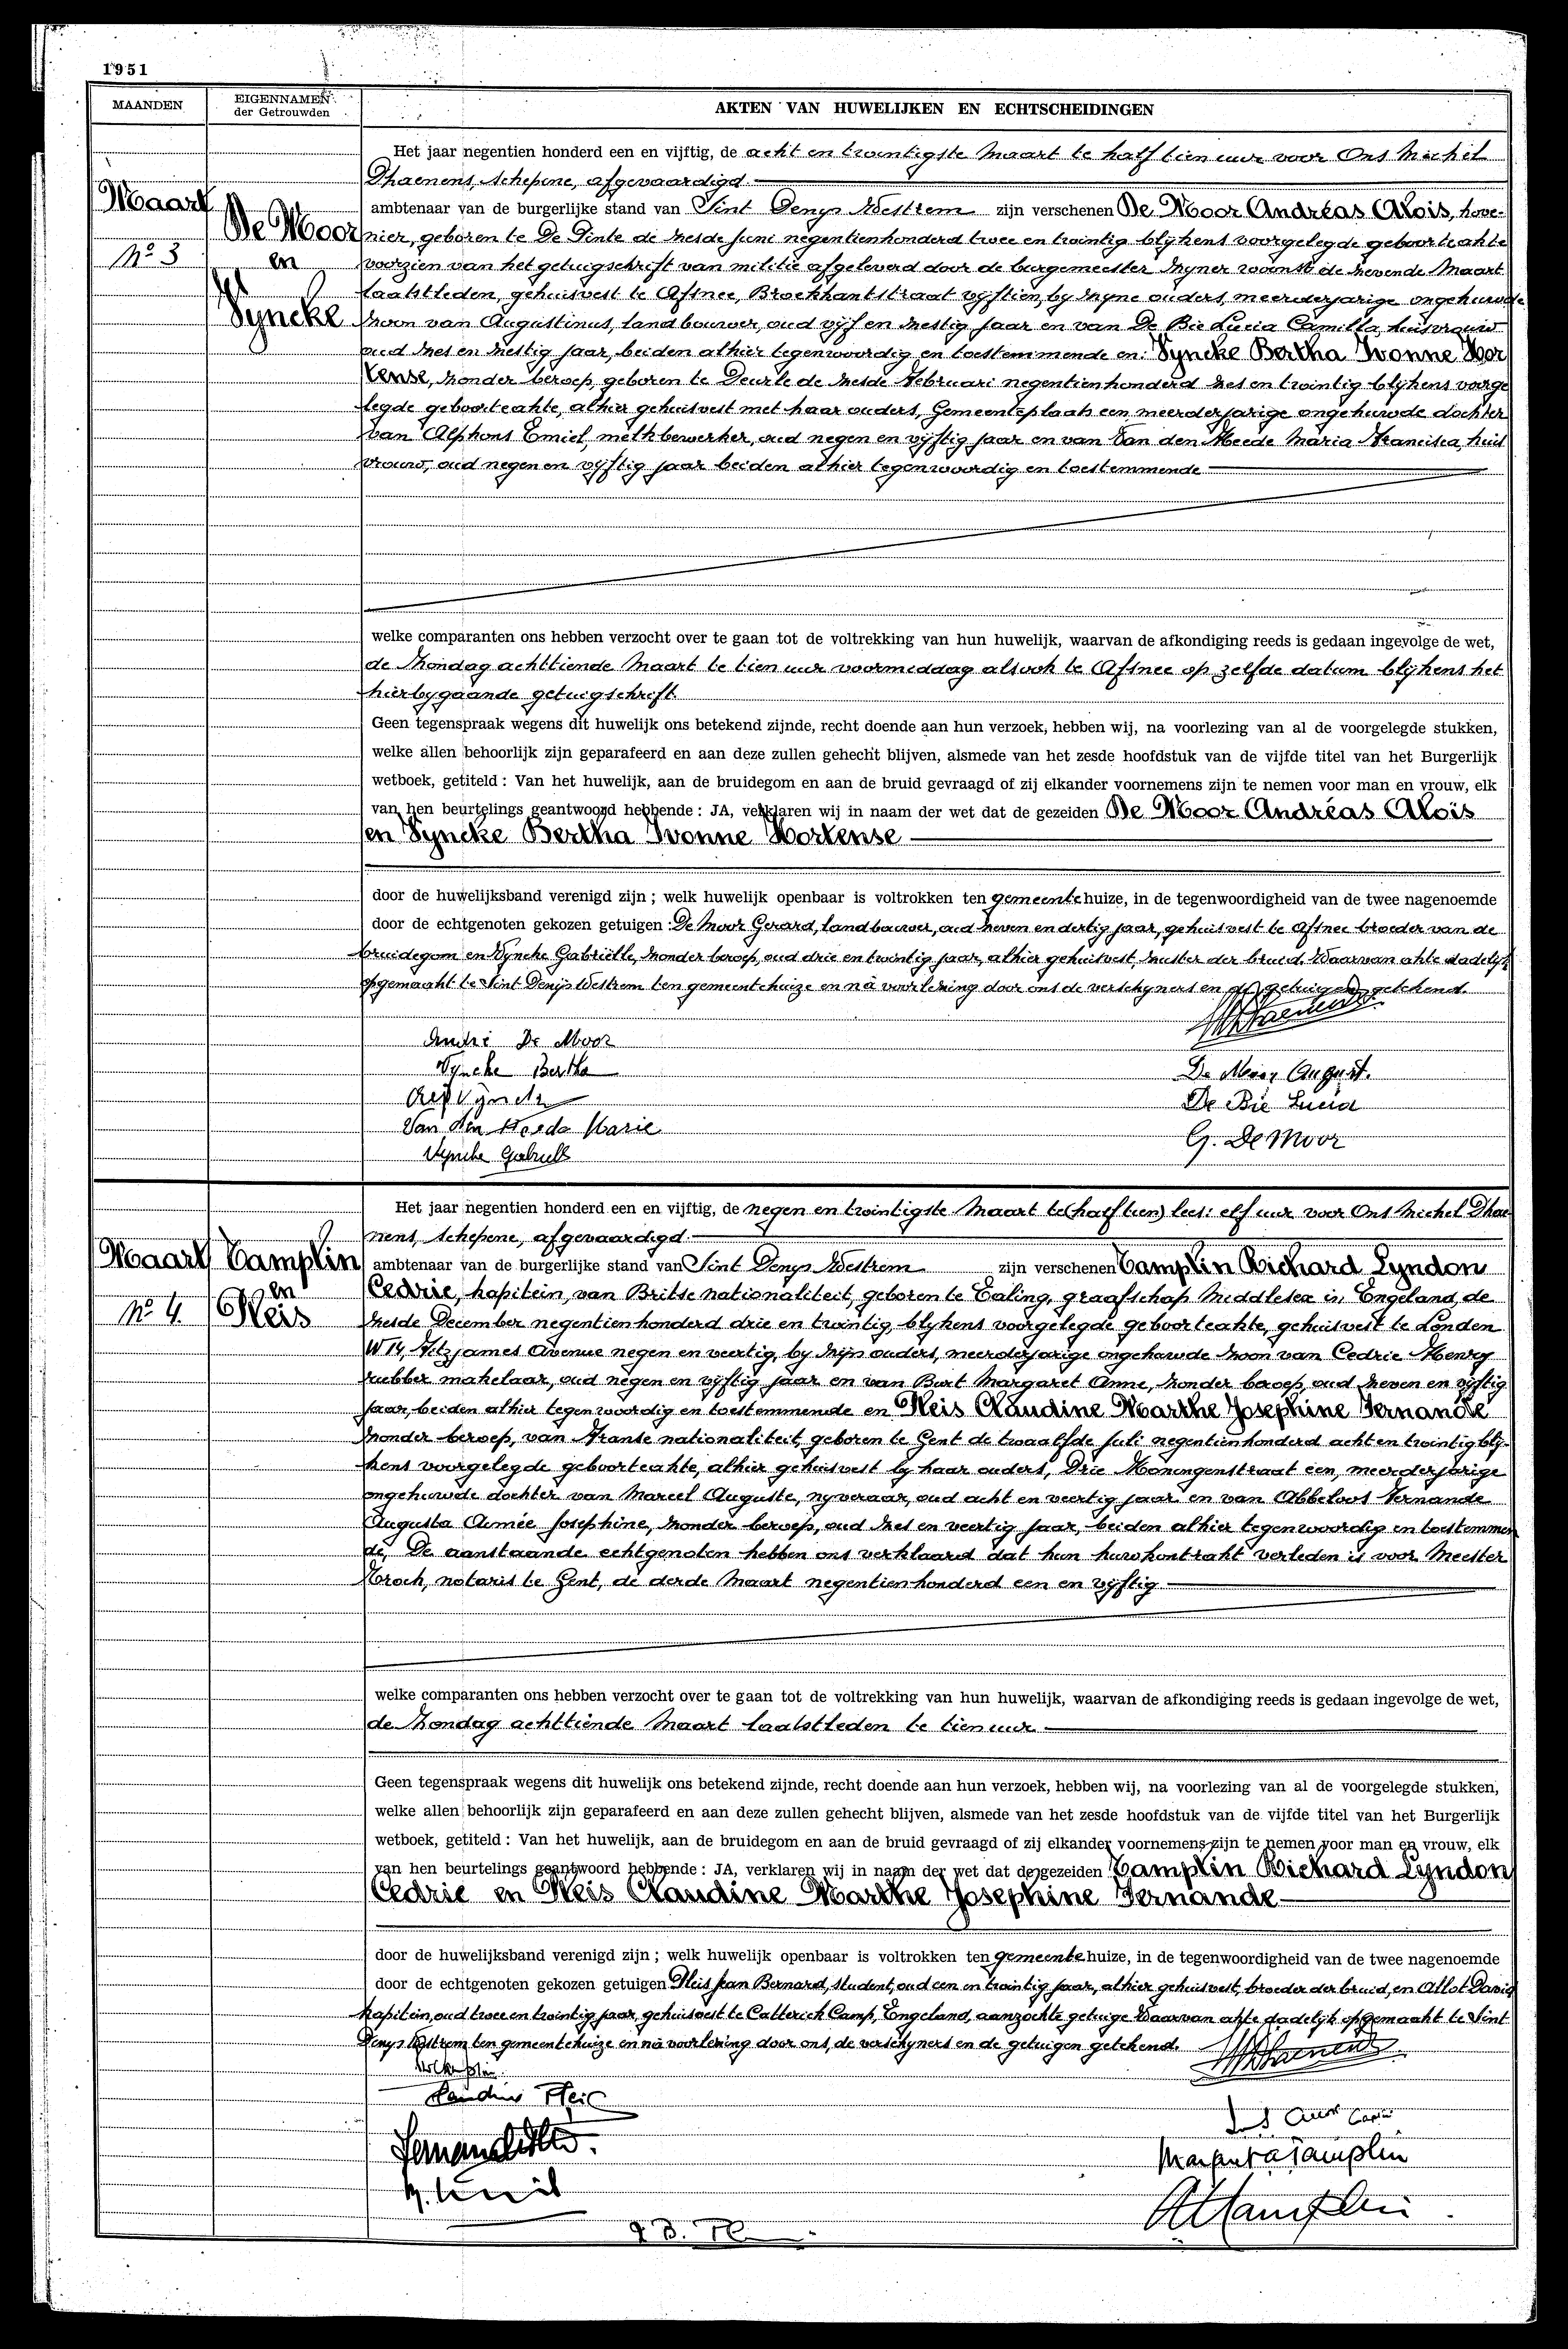 1951
MAANDEN
EIGENNAMEN
der Getrouwden
AKTEN VAN HUWELIJKEN EN ECHTSCHEIDINGEN
Het jaar negentien honderd een en vijftig, de acht en twintigste Maart te half tien uur voor Ons Michel
Dhaenens, schepene, afgevaardigd
Maart
Nº 3
De Moor
en
Vyncke
ambtenaar van de burgerlijke stand van Sint Denys Westrem zijn verschenen De Moor Andréas Aloïs, hove-
nier, geboren te De Pinte de zesde Juni negentienhonderd twee en twintig blijkens voorgelegde geboorteakte
voorzien van het getuigschrift van militie afgeleverd door de burgemeester zijner woonst de zevende Maart
laatstleden, gehuisvest te Afsnee, Broekkantstraat vijftien, by zijne ouders, meerderjarige ongehuwde
zoon van Augustinus, landbouwer, oud vijf en zestig jaar en van De Bie Lucia Camilla, huisvrouw
oud zes en zestig jaar, beiden alhier tegenwoordig en toestemmende en: Vyncke Bertha Ivonne Hor
tense, zonder beroep, geboren te Deurle de zesde Februari negentienhonderd zes en twintig blijkens voorge
legde geboorteakte, alhier gehuisvest met haar ouders, Gemeenteplaats een meerderjarige ongehuwde dochter
van Alphons Emiel, melkbewerker, oud negen en vijftig jaar en van Van den Heede Maria Francisca, huis
vrouw, oud negen en vijftig jaar beiden alhier tegenwoordig en toestemmende
welke comparanten ons hebben verzocht over te gaan tot de voltrekking van hun huwelijk, waarvan de afkondiging reeds is gedaan ingevolge de wet,
de zondag achttiende Maart te tien uur voormiddag alsook te Afsnee op zelfde datum blijkens het
hierbygaande getuigschrift
Geen tegenspraak wegens dit huwelijk ons betekend zijnde, recht doende aan hun verzoek, hebben wij, na voorlezing van al de voorgelegde stukken,
welke allen behoorlijk zijn geparafeerd en aan deze zullen gehecht blijven, alsmede van het zesde hoofdstuk van de vijfde titel van het Burgerlijk
wetboek, getiteld : Van het huwelijk, aan de bruidegom en aan de bruid gevraagd of zij elkander voornemens zijn te nemen voor man en vrouw, elk
van hen beurtelings geantwoord hebbende : JA, verklaren wij in naam der wet dat de gezeiden De Moor Andréas Aloïs
en Vyncke Bertha Ivonne Hortense
door de huwelijksband verenigd zijn ; welk huwelijk openbaar is voltrokken ten gemeentehuize, in de tegenwoordigheid van de twee nagenoemde
door de echtgenoten gekozen getuigen : De Moor Gerard, landbouwer, oud zeven en dertig jaar, gehuisvest te Afsnee broeder van de
bruidegom en Vyncke Gabriëlle, zonder beroep, oud drie en twintig jaar, alhier gehuisvest, zuster der bruid. Waarvan akte dadelijk
opgemaakt te Sint Denijs Westrem ten gemeentehuize en nà voorlezing door ons de verschijners en de getuigen getekend.
André De Moor
Vyncke Bertha
De Moor August.
De Bie Lucia
Van den Heede Marie
G. De Moor
Vyncke Gabriell
Het jaar negentien honderd een en vijftig, de negen en twintigste Maart te (half tien) lees: elf uur voor Ons Michel Dhae
nens, schepene, afgevaardigd
Maart
Nº 4.
Tamplin
en
Pleis
ambtenaar van de burgerlijke stand van Sint Denys Westrem zijn verschenen Tamplin Richard Lyndon
Cedric, kapitein, van Britse nationaliteit, geboren te Ealing, graafschap Middlesex in Engeland, de
zesde December negentienhonderd drie en twintig, blijkens voorgelegde geboorteakte, gehuisvest te Londen
W 14, Fitzjames Avenue negen en veertig, by zijn ouders, meerderjarige ongehuwde zoon van Cedric Henry
rubber makelaar, oud negen en vijftig jaar en van Burt Margaret Anne, zonder beroep, oud zeven en vijftig
jaar, beiden alhier tegenwoordig en toestemmende en Pleis Claudine Marthe Josephine Fernande
zonder beroep, van Franse nationaliteit, geboren te Gent de twaalfde Juli negentienhonderd acht en twintig blij-
kens voorgelegde geboorteakte, alhier gehuisvest by haar ouders, Drie Koningenstraat een, meerderjarige
ongehuwde dochter van Marcel Auguste, nyveraar, oud acht en veertig jaar en van Abbeloos Fernande
Augusta Aimée Josephine, zonder beroep, oud zes en veertig jaar, beiden alhier tegenwoordig en toestemmen
de, De aanstaande echtgenoten hebben ons verklaard dat hun huwkontrakt verleden is voor Meester
notaris te Gent, de derde Maart negentienhonderd een en vijftig
welke comparanten ons hebben verzocht over te gaan tot de voltrekking van hun huwelijk, waarvan de afkondiging reeds is gedaan ingevolge de wet,
de zondag achttiende Maart laatstleden te tien uur
Geen tegenspraak wegens dit huwelijk ons betekend zijnde, recht doende aan hun verzoek, hebben wij, na voorlezing van al de voorgelegde stukken,
welke allen behoorlijk zijn geparafeerd en aan deze zullen gehecht blijven, alsmede van het zesde hoofdstuk van de vijfde titel van het Burgerlijk
wetboek, getiteld : Van het huwelijk, aan de bruidegom en aan de bruid gevraagd of zij elkander voornemens zijn te nemen voor man en vrouw, elk
van hen beurtelings geantwoord hebbende : JA, verklaren wij in naam der wet dat de gezeiden Tamplin Richard Lyndon
Cedric en Pleis Claudine Marthe Josephine Fernande
door de huwelijksband verenigd zijn ; welk huwelijk openbaar is voltrokken ten gemeentehuize, in de tegenwoordigheid van de twee nagenoemde
door de echtgenoten gekozen getuigen Pleis Jean Bernard, student, oud een en twintig jaar, alhier gehuisvest, broeder der bruid, en Allot David
kapitein, oud twee en twintig jaar, gehuisvest te Catterick Camp, Engeland, aanzochte getuige Waarvan akte dadelijk opgemaakt te Sint
Denys Westrem ten gemeentehuize en nà voorlezing door ons, de verschijners en de getuigen getekend.
Claudine Pleis
Margaret A Tamplin